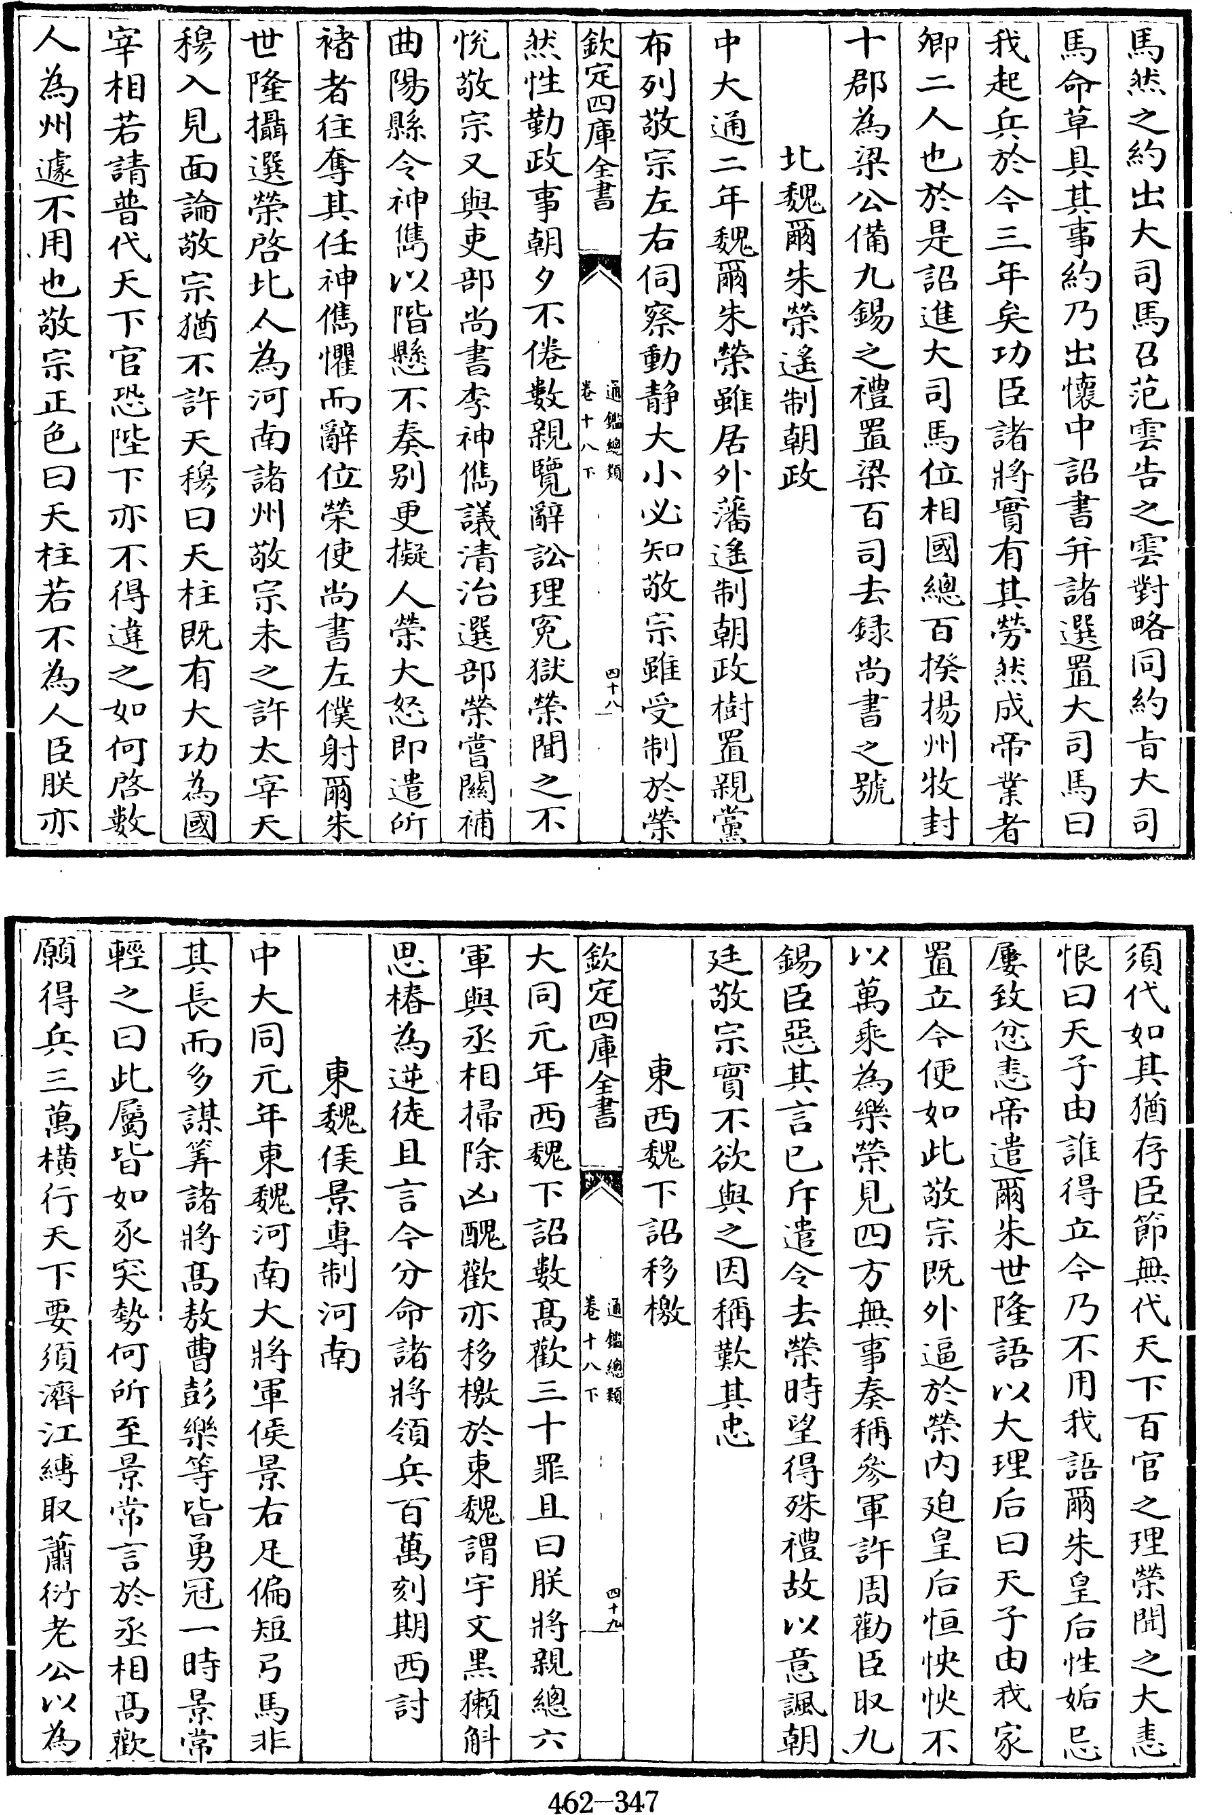 馬然之約出大司馬召范雲告之雲對略同約㫖大司
馬命草具其事約乃出懐中詔書并諸選置大司馬曰
我起兵於今三年矣功臣諸將實有其勞然成帝業者
卿二人也於是詔進大司馬位相國總百揆揚州牧封
十郡為梁公備九錫之禮置梁百司去録尚書之號
北魏爾朱榮遙制朝政
中大通二年魏爾朱榮雖居外藩遙制朝政樹置親黨
布列敬宗左右伺察動靜大小必知敬宗雖受制於榮
欽定四庫全書
通鑑總類
卷十八下
四十八
然性勤政事朝夕不倦數親覽辭訟理寃獄榮聞之不
悅敬宗又與吏部尚書李神儁議清治選部榮嘗關補
曲陽縣令神儁以階懸不奏别更擬人榮大怒即遣所
補者往奪其任神儁懼而辭位榮使尚書左僕射爾朱
世隆攝選榮啓北人為河南諸州敬宗未之許太宰天
穆入見面論敬宗猶不許天穆曰天柱既有大功為國
宰相若請普代天下官恐陛下亦不得違之如何啓數
人為州遽不用也敬宗正色曰天柱若不為人臣朕亦
須代如其猶存臣節無代天下百官之理榮聞之大恚
恨曰天子由誰得立今乃不用我語爾朱皇后性妬忌
屢致忿恚帝遣爾朱世隆語以大理后曰天子由我家
置立今便如此敬宗既外逼於榮内廹皇后恒怏怏不
以萬乘為樂榮見四方無事奏稱參軍許周勸臣取九
錫臣惡其言已斥遣令去榮時望得殊禮故以意諷朝
廷敬宗實不欲與之因稱歎其忠
東西魏下詔移檄
欽定四庫全書
通鑑總類
卷十八下
四十九
大同元年西魏下詔數髙歡二十罪且曰朕將親總六
軍與丞相掃除凶醜歡亦移檄於東魏謂宇文黒獺斛
思椿為逆徒且言今分命諸將領兵百萬刻期西討
東魏侯景專制河南
中大同元年東魏河南大將軍侯景右足偏短弓馬非
其長而多謀筭諸將髙敖曹彭樂等皆勇冠一時景常
輕之曰此屬皆如豕突勢何所至景常言於丞相髙歡
願得兵三萬横行天下要須濟江縛取蕭衍老公以為
462-347